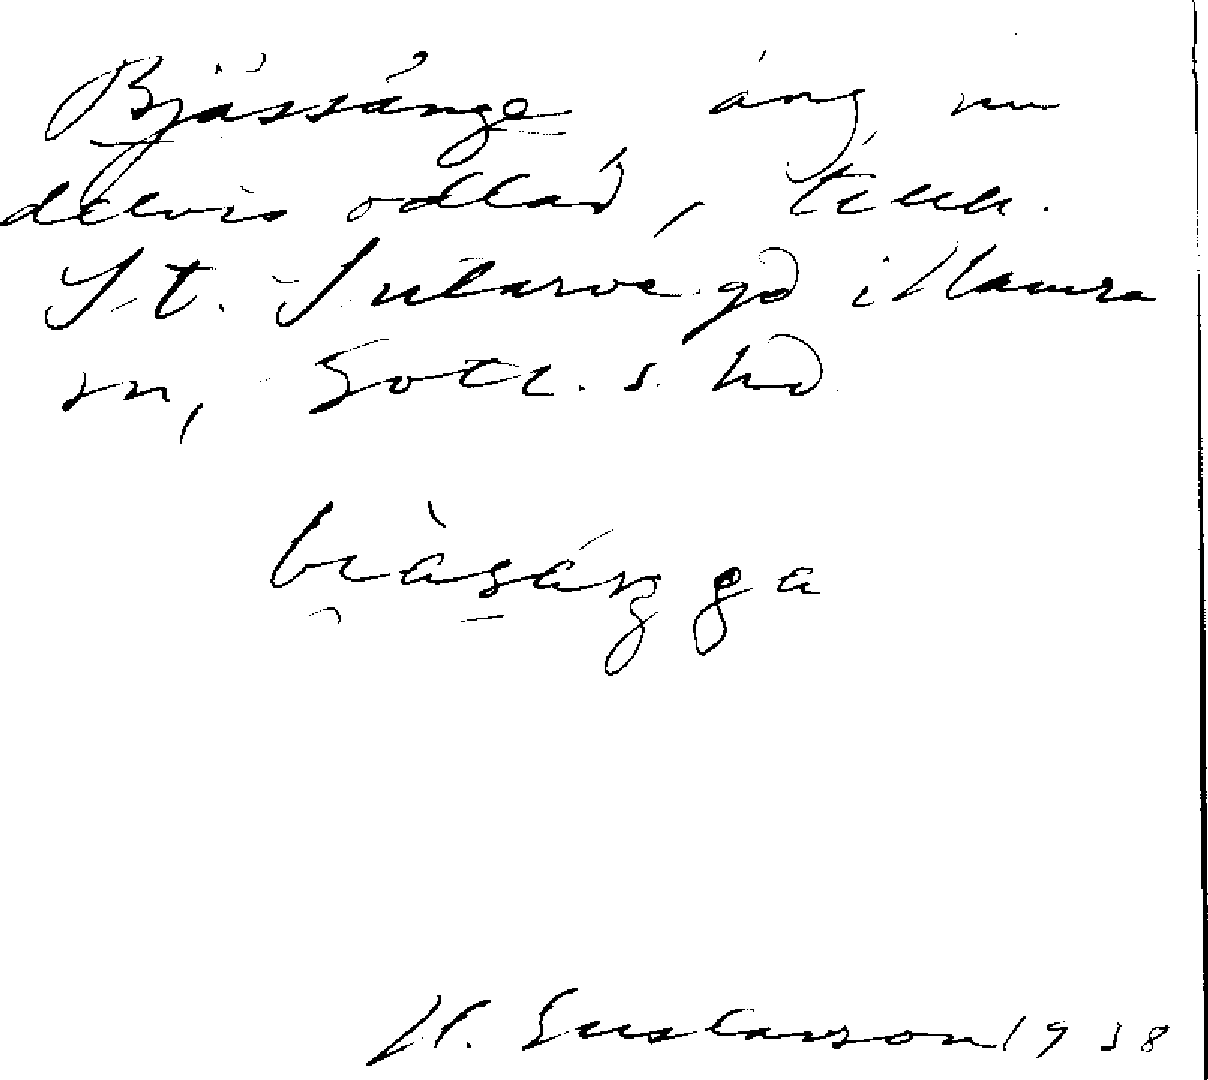 Bjässänge äng nu
delvis odlad, tillh.
St. Sutarve gd i Hamra
sn, Gotl. s. hd
biàsáŋga
H. Gustavson 1938